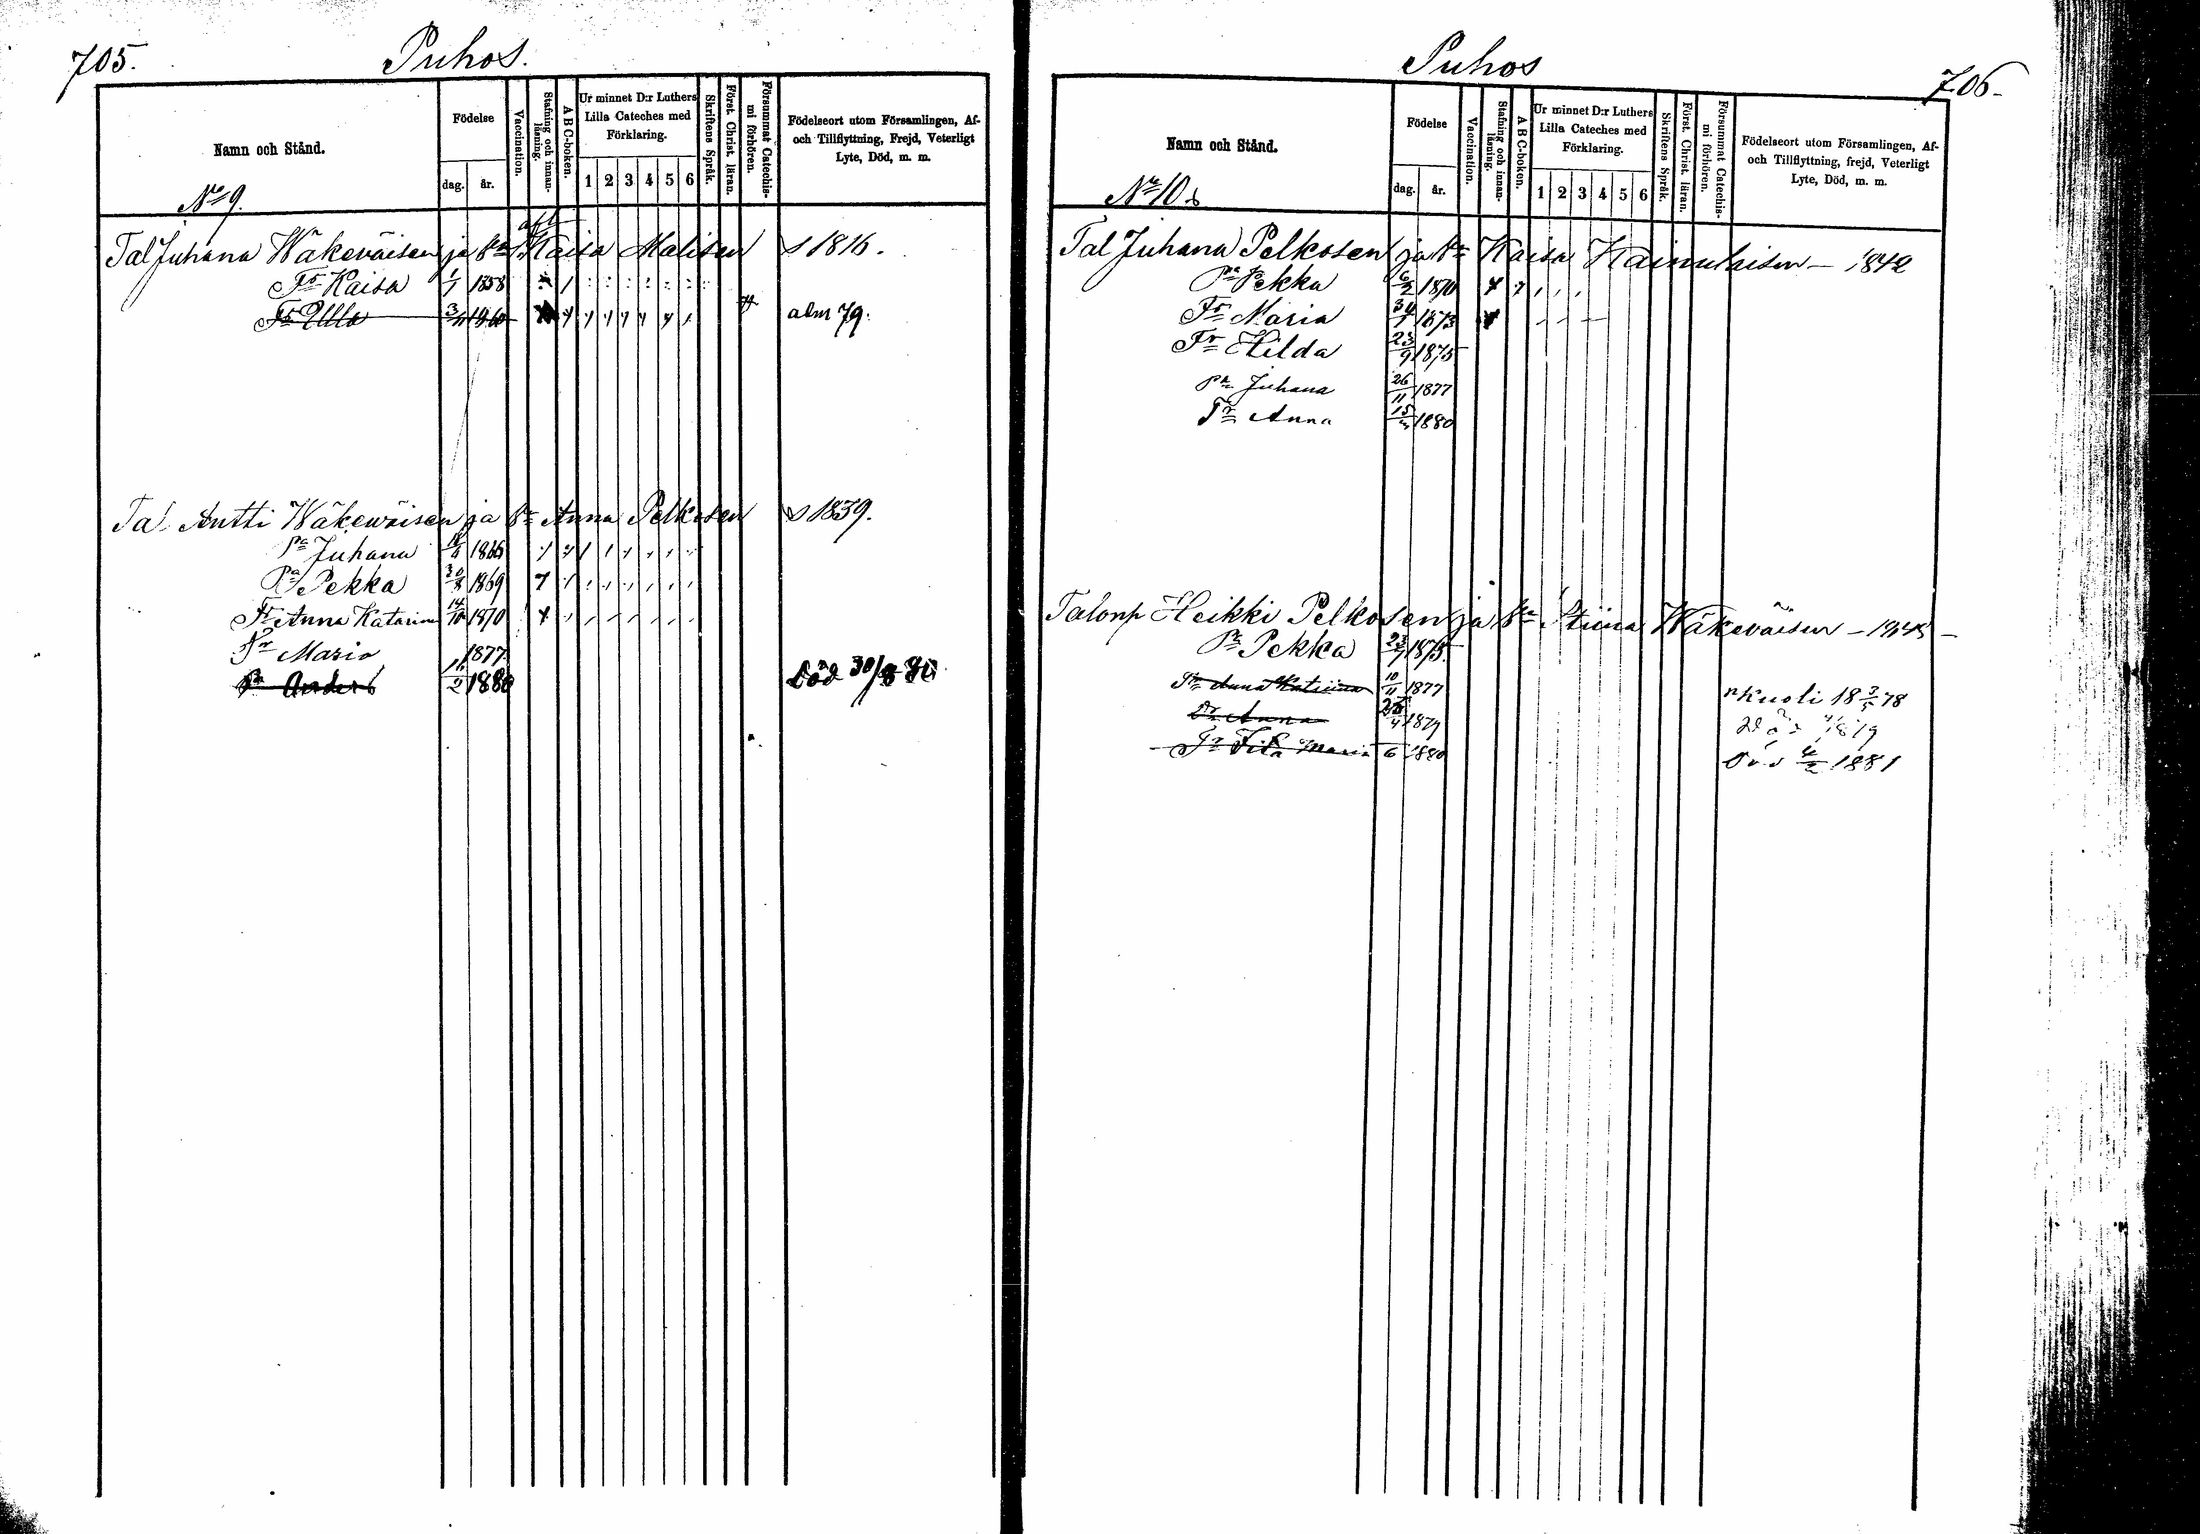 705.
Puhos.
Namn och Stånd.
Födelse
dag.
år.
Vaccination.
Stafning och innan-
läsning.
A B C-boken.
Ur minnet D:r Luthers
Lilla Cateches med
Förklaring.
1 2 3 4 5 6
Skriftens Språk.
Först. Christ. läran.
Försummat Catechis-
mi förhören.
Födelseort utom Församlingen, Af-
och Tillflyttning, Frejd, Veterligt
Lyte, Död, m. m.
No 9.
Tal Juhana Wäkeväisen ja Kaisa Malisen s 1816.
Tr Kaisa 1/1 1858
Tr Ulla alm 79.
Tal. Antti Wäkewäisen ja Anna Pelkosen s 1839.
Pa Juhana
Pa Pekka 30/8 1869
Tr Anna Katarina 14/10 1870
Tr Maria 1877
Pa Anders 1880 Död 30/8 80
706.
Puhos
Namn och Stånd.
Födelse
dag.
år.
Vaccination.
Stafning och innan-
läsning.
A B C-boken.
Ur minnet D:r Luthers
Lilla Cateches med
Förklaring.
1 2 3 4 5 6
Skriftens Språk.
Först. Christ. läran.
Försummat Catechis-
mi förhören.
Födelseort utom Församlingen, Af-
och Tillflyttning, frejd, Veterligt
Lyte, Död, m. m.
No 10
Tal Juhana Pelkosen ja Kaisa Kainulaisen - 1842
Pa Pekka 6/2 1870
Tr Maria 1873
Tr Hilda 23/9 1875
Pa Juhana 26/11 1877
Tr Anna 1880
Talonp Heikki Pelkosen ja Stiina Wäkeväisen
Pa Pekka 1875
Tr Anna Katriina 10/11 1877 kuoli 18 3/5 78
Tr Anna 1879
Tr Maria 6 1880 1881